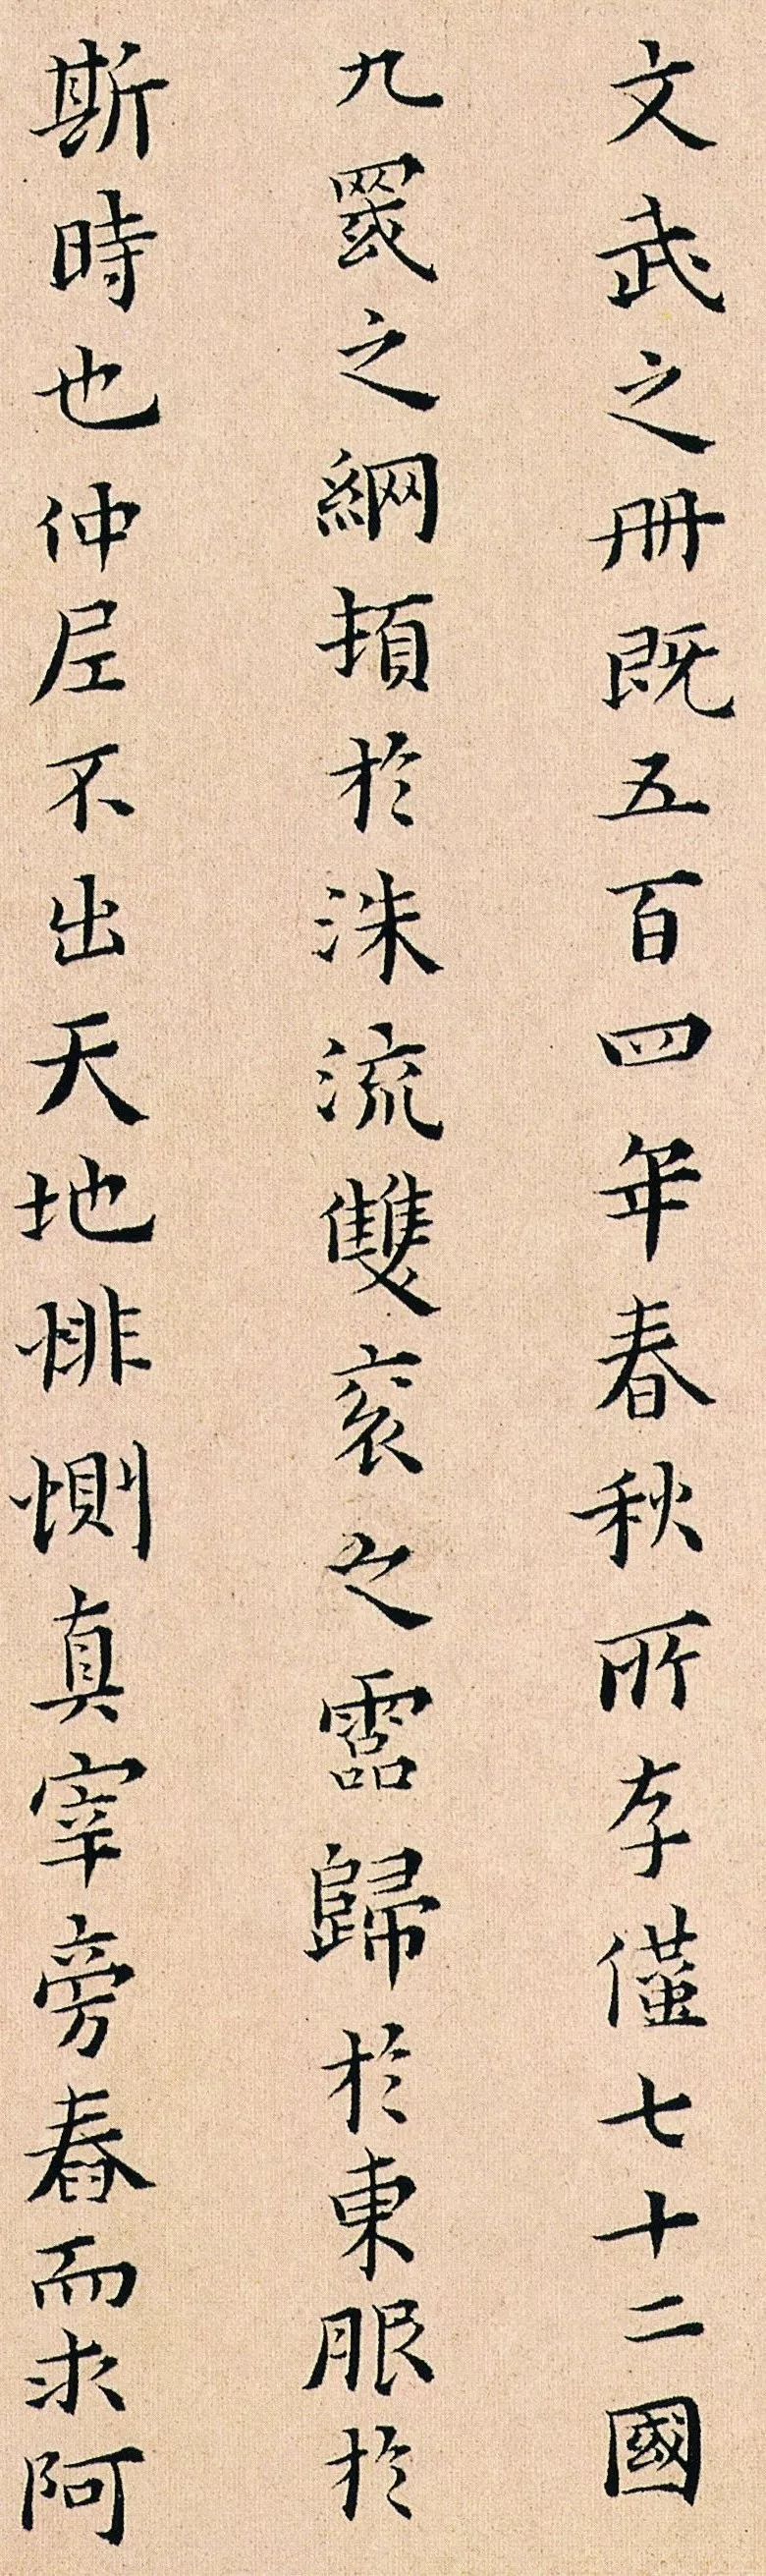 文武之册既五百四年春秋所存僅七十二國
九罭之網損於洙流雙衮之靈歸於東服於
斯時也仲尼不出天地悱惻真宰旁舂而求阿